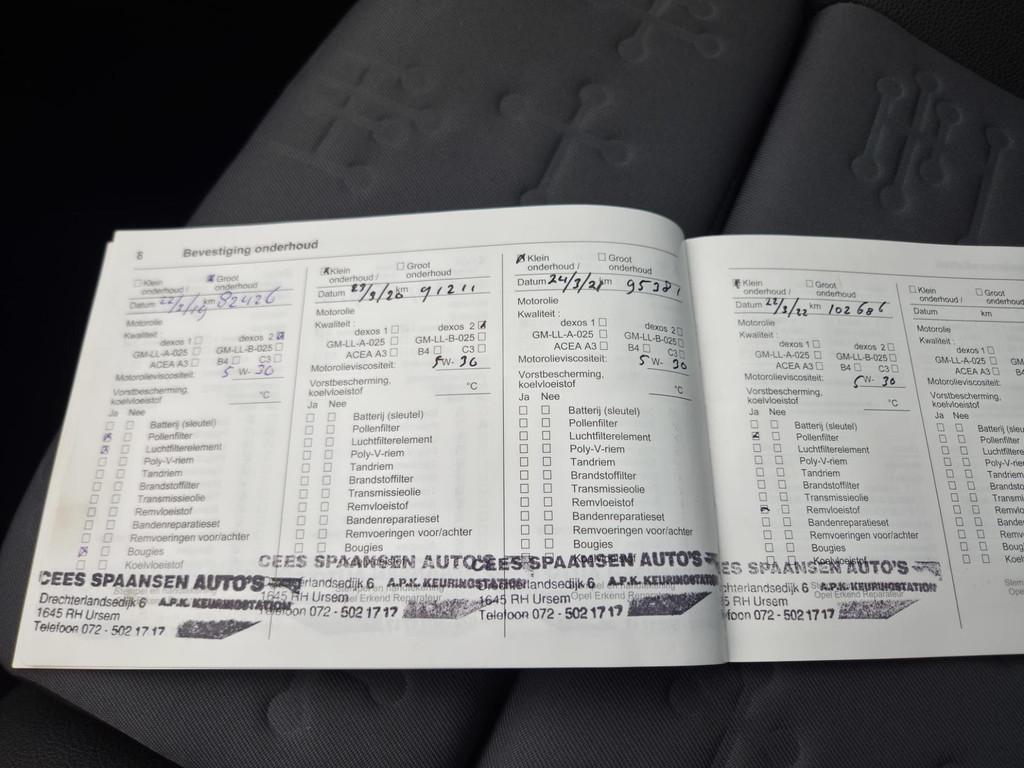 8 Bevestiging onderhoud
Klein onderhoud /
Groot onderhoud
Datum 22/2/19 km 82426
Motorolie
Kwaliteit :
dexos 1
dexos 2
GM-LL-A-025
GM-LL-B-025
ACEA A3
B4
C3
Motorolieviscositeit: 5 W- 30
Vorstbescherming, koelvloeistof
°C
Ja Nee
Batterij (sleutel)
Pollenfilter
Luchtfilterelement
Poly-V-riem
Tandriem
Brandstoffilter
Transmissieolie
Remvloeistof
Bandenreparatieset
Remvoeringen voor/achter
Bougies
Koelvloeistof
CEES SPAANSEN AUTO'S
Drechterlandsedijk 6 A.P.K. KEURINGSTATION
1645 RH Ursem
Telefoon 072 - 502 17 17
Klein onderhoud /
Groot onderhoud
Datum km 91211
Motorolie
Kwaliteit :
dexos 1
dexos 2
GM-LL-A-025
GM-LL-B-025
ACEA A3
B4
C3
Motorolieviscositeit: 5W- 30
Vorstbescherming, koelvloeistof
°C
Ja Nee
Batterij (sleutel)
Pollenfilter
Luchtfilterelement
Poly-V-riem
Tandriem
Brandstoffilter
Transmissieolie
Remvloeistof
Bandenreparatieset
Remvoeringen voor/achter
Bougies
CEES SPAANSEN AUTO'S
erlandsedijk 6 A.P.K. KEURINGSTATION
RH Ursem
foon 072 - 502 17 17
Klein onderhoud /
Groot onderhoud
Datum 24/3/21 km 95381
Motorolie
Kwaliteit :
dexos 1
dexos 2
GM-LL-A-025
GM-LL-B-025
ACEA A3
B4
C3
Motorolieviscositeit: 5 W- 30
Vorstbescherming, koelvloeistof
°C
Ja Nee
Batterij (sleutel)
Pollenfilter
Luchtfilterelement
Poly-V-riem
Tandriem
Brandstoffilter
Transmissieolie
Remvloeistof
Bandenreparatieset
Remvoeringen voor/achter
Bougies
CEES SPAANSEN AUTO'S
Drechterlandsedijk 6 A.P.K. KEURINGSTATION
1645 RH Ursem
Telefoon 072 - 502 17 17
Klein onderhoud /
Groot onderhoud
Datum 22/3/22 km 102686
Motorolie
Kwaliteit :
dexos 1
dexos 2
GM-LL-A-025
GM-LL-B-025
ACEA A3
B4
C3
Motorolieviscositeit: 5W- 30
Vorstbescherming, koelvloeistof
°C
Ja Nee
Batterij (sleutel)
Pollenfilter
Luchtfilterelement
Poly-V-riem
Tandriem
Brandstoffilter
Transmissieolie
Remvloeistof
Bandenreparatieset
Remvoeringen voor/achter
Bougies
Koelvloeistof
ES SPAANSEN AUTO'S
echterlandsedijk 6 A.P.K. KEURINGSTATION
Opel Erkend Reparateur
645 RH Ursem
foon 072 - 502 17 17
Klein onderhoud /
Groot onderhoud
Datum km
Motorolie
Kwaliteit :
dexos 1
GM-LL-A-025
GM-LL
ACEA A3
Motorolieviscositeit:
Vorstbescherming, koelvloeistof
Ja Nee
Batterij (sleu
Pollenfilter
Luchtfiltere
Poly-V-rie
Tandriem
Brandsto
Transmis
Remvloe
Banden
Remvo
Bougie
Koelvl